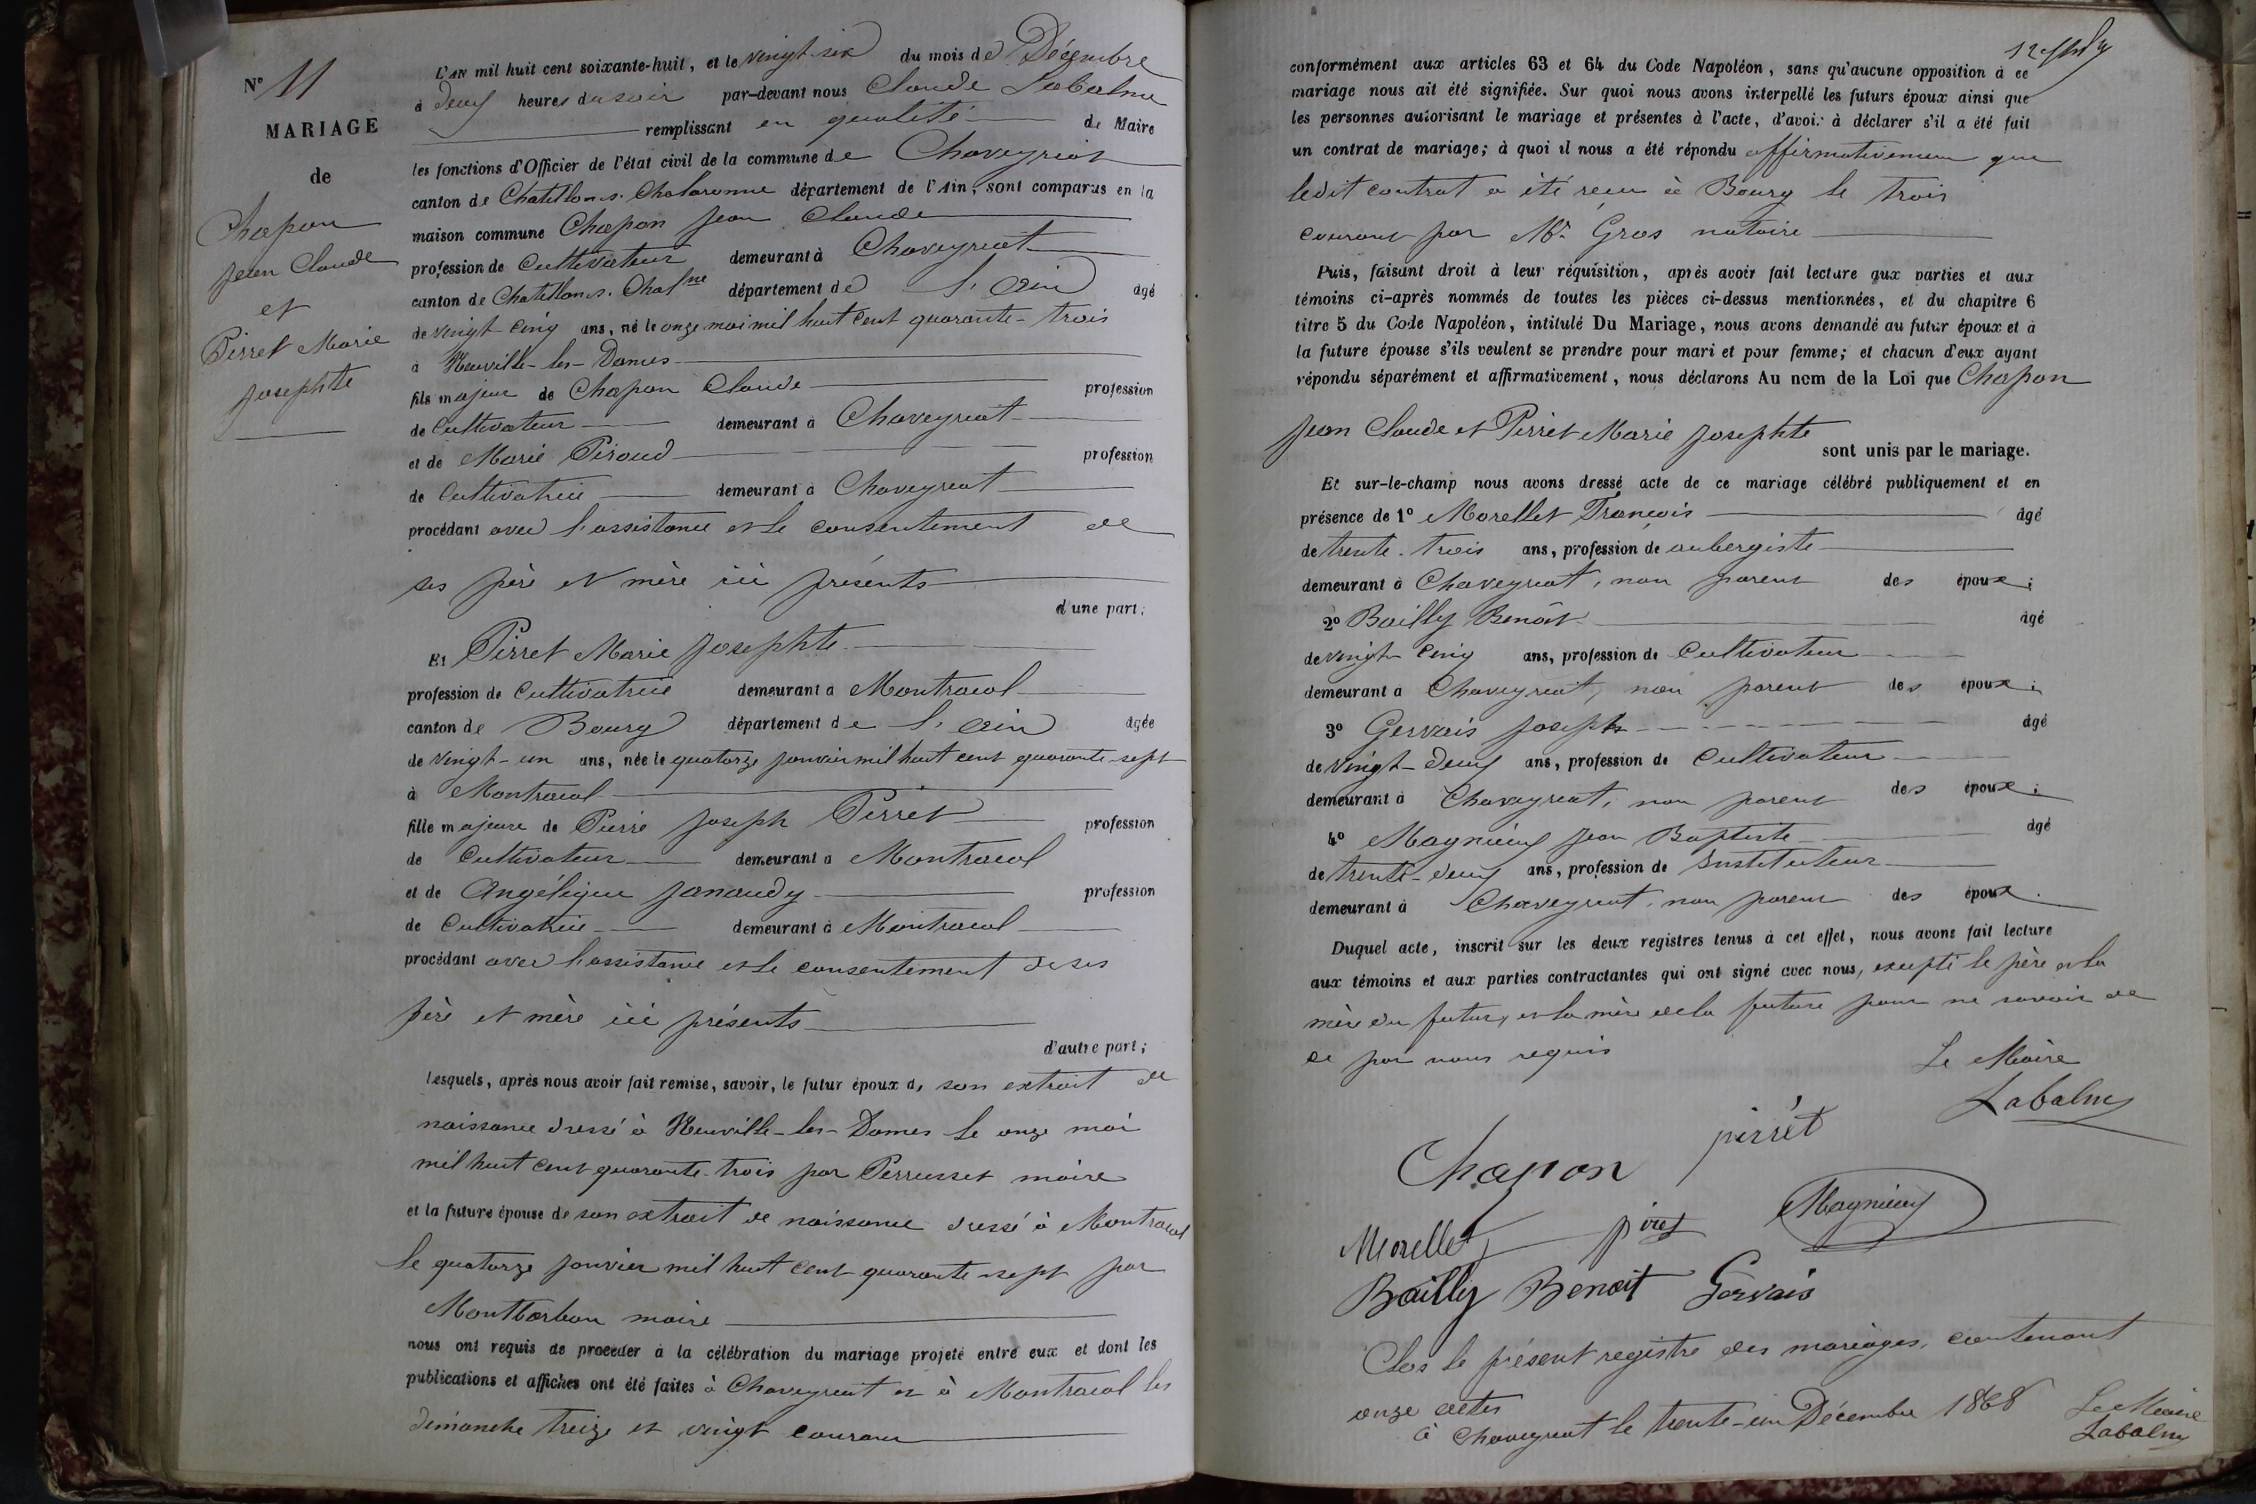 N° 11
MARIAGE
de
Chapon
Jean Claude
et
Pirret Marie
Josephte
L'AN mil huit cent soixante-huit, et le vingt-six du mois de Décembre
à deux heures du soir par-devant nous Claude Labalme
remplissant en qualité de Maire
les fonctions d'Officier de l'état civil de la commune de Chaveyriat
canton de Chatillon-s.-Chalaronne département de l'Ain, sont comparus en la
maison commune Chapon Jean Claude
profession de Cultivateur demeurant à Chaveyriat
canton de Chatillon s. Chalne département de l'Ain âgé
de vingt-cinq ans, né le onze mai mil huit cent quarante-trois
à Neuville-les-Dames
fils majeur de Chapon Claude profession
de Cultivateur demeurant à Chaveyriat
et de Marie Piroud profession
de Cultivatrice demeurant à Chaveyriat
procédant avec l'assistance et le consentement de
ses père et mère ici présents
d'une part;
Et Pirret Marie Josephte
profession de Cultivatrice demeurant à Montracol
canton de Bourg département de l'Ain âgée
de vingt-un ans, née le quatorze janvier mil huit cent quarante-sept
à Montracol
fille majeure de Pierre Joseph Pirret profession
de Cultivateur demeurant à Montracol
et de Angélique Janaudy profession
de Cultivatrice demeurant à Montracol
procédant avec l'assistance et le consentement de ses
père et mère ici présents
d'autre part;
Lesquels, après nous avoir fait remise, savoir, le futur époux de son extrait de
naissance dressé à Neuville-les-Dames le onze mai
mil huit cent quarante-trois par Perrusset maire
et la future épouse de son extrait de naissance dressé à Montracol
le quatorze janvier mil huit cent quarante-sept par
Montbarbon maire
nous ont requis de procéder à la célébration du mariage projeté entre eux et dont les
publications et affiches ont été faites à Chaveyriat et à Montracol les
dimanche treize et vingt courant
conformément aux articles 63 et 64 du Code Napoléon, sans qu'aucune opposition à ce
mariage nous ait été signifiée. Sur quoi nous avons interpellé les futurs époux ainsi que
les personnes autorisant le mariage et présentes à l'acte, d'avoir à déclarer s'il a été fait
un contrat de mariage; à quoi il nous a été répondu affirmativement que
ledit contrat a été reçu à Bourg le trois
courant par Me Gros notaire
Puis, faisant droit à leur réquisition, après avoir fait lecture aux parties et aux
témoins ci-après nommés de toutes les pièces ci-dessus mentionnées, et du chapitre 6
titre 5 du Code Napoléon, intitulé Du Mariage, nous avons demandé au futur époux et à
la future épouse s'ils veulent se prendre pour mari et pour femme; et chacun d'eux ayant
répondu séparément et affirmativement, nous déclarons Au nom de la Loi que Chapon
Jean Claude et Pirret Marie Josephte
sont unis par le mariage.
Et sur-le-champ nous avons dressé acte de ce mariage célébré publiquement et en
présence de 1° Morellet François âgé
de trente-trois ans, profession de aubergiste
demeurant à Chaveyriat, non parent des époux;
2° Bailly Benoît âgé
de vingt-cinq ans, profession de Cultivateur
demeurant à Chaveyriat, non parent des époux;
3° Gervais Joseph âgé
de vingt-deux ans, profession de Cultivateur
demeurant à Chaveyriat, non parent des époux;
4° Magnieux Jean Baptiste âgé
de trente-deux ans, profession de Instituteur
demeurant à Chaveyriat, non parent des époux.
Duquel acte, inscrit sur les deux registres tenus à cet effet, nous avons fait lecture
aux témoins et aux parties contractantes qui ont signé avec nous, excepté le père et la
mère du futur, et la mère de la future pour ne savoir de
ce par nous requis
Le Maire
Labalme
Chapon pirrét
Morellet piret Magnieux
Bailly Benoit Gervais
Clos le présent registre des mariages, contenant
onze actes
à Chaveyriat le trente-un Décembre 1868
Le Maire
Labalme